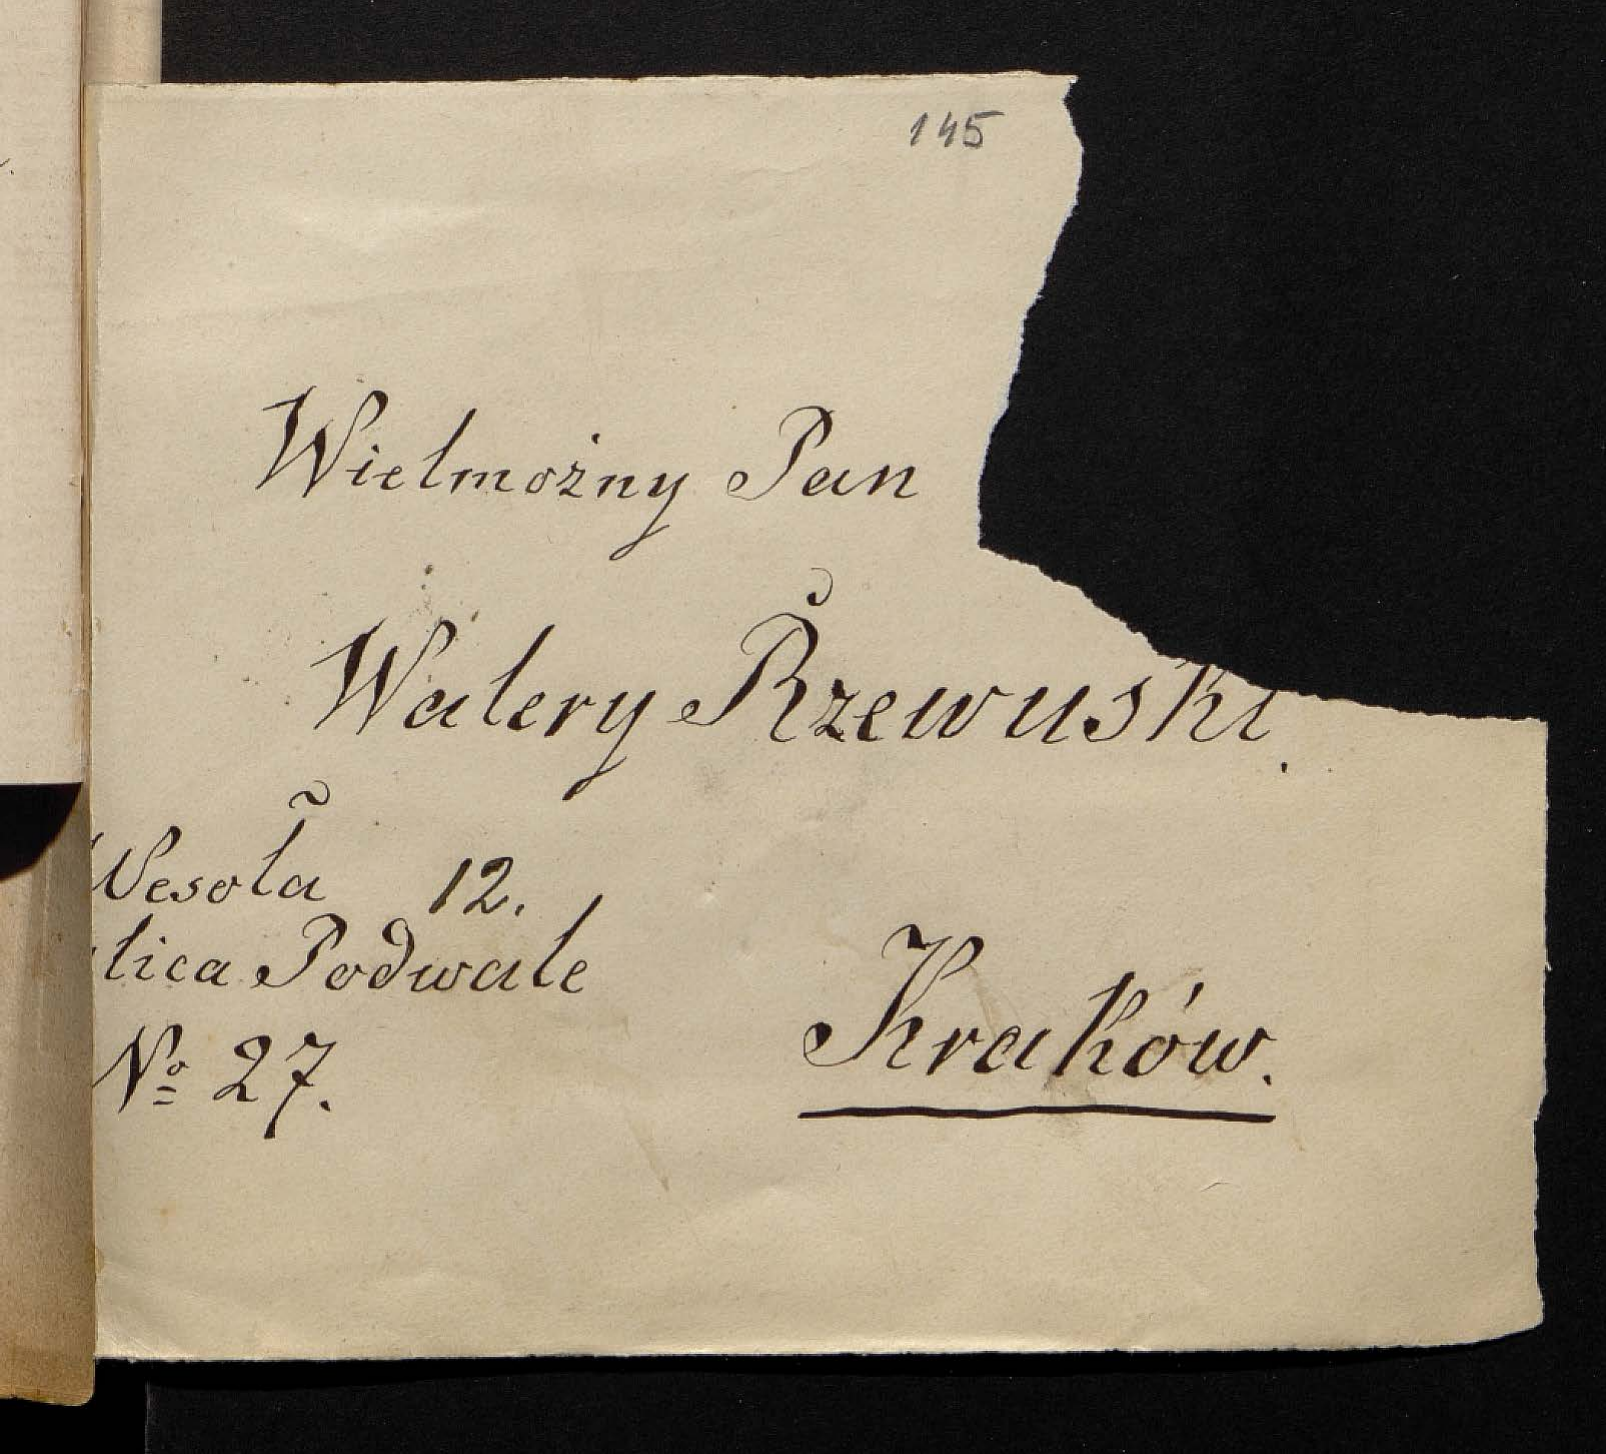 145
Wielmożny Pan
Walery Rzewuski.
Wesoła 12.
ulica Podwale
Kraków.
No 27.